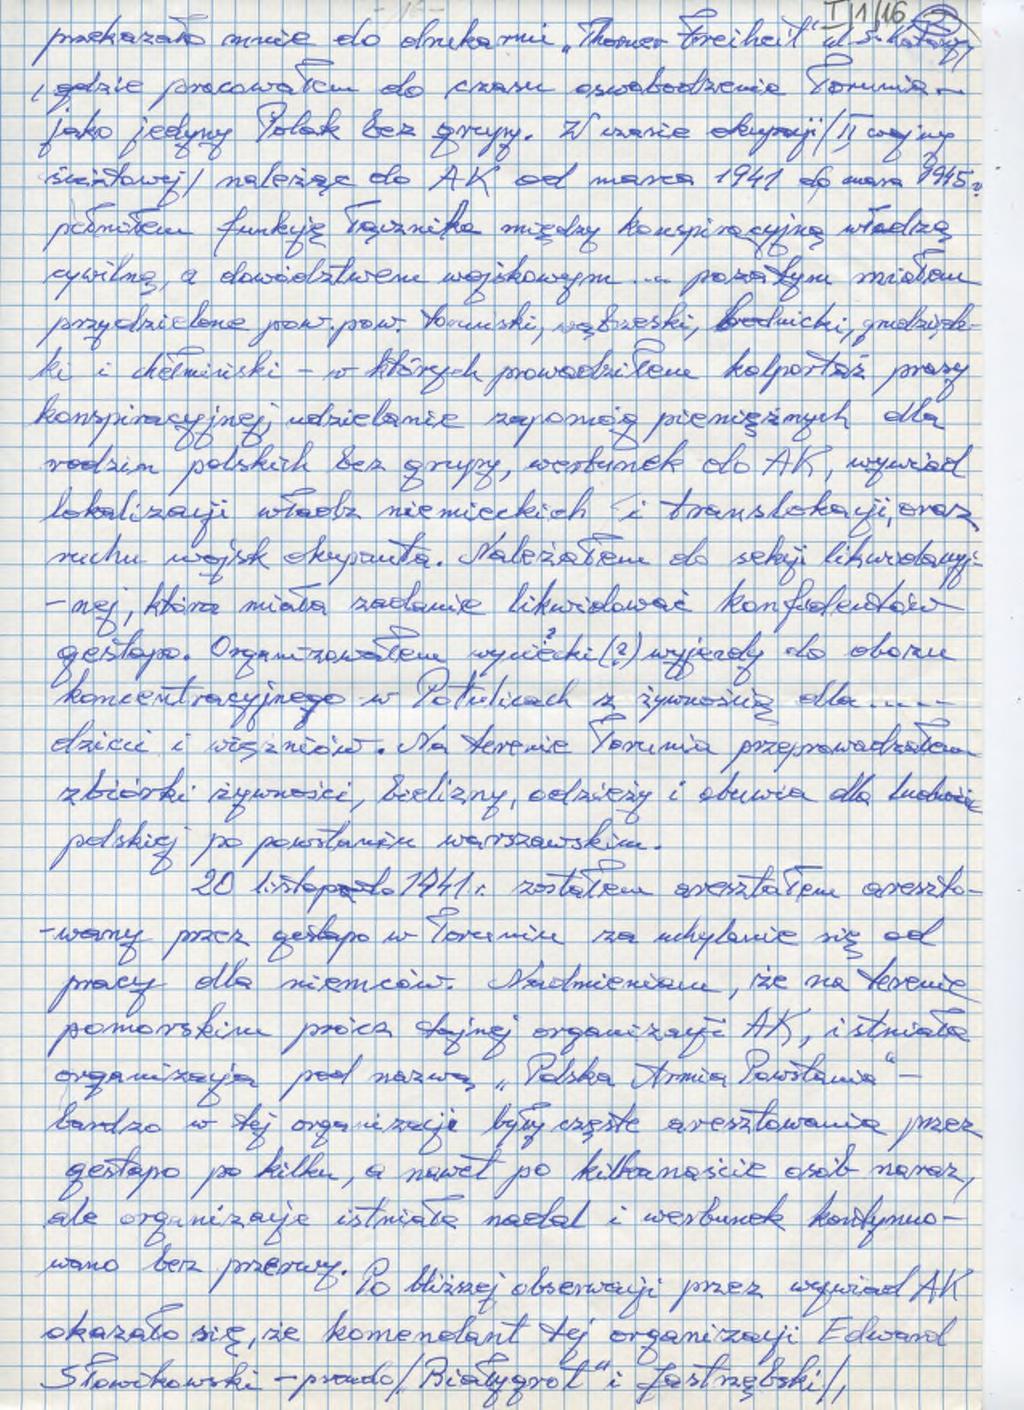 I/1/16
przekazało mnie do drukarni „Thorner Freiheit" ul. św. Katarzyny
, gdzie pracowałem do czasu oswobodzenia Torunia –
jako jedyny Polak bez grupy. W czasie okupacji / II wojny
światowej / należąc do AK od marca 1941 do marca 1945 r.
pełniłem funkcję łącznika między konspiracyjną władzą
cywilną, a dowództwem wojskowym ... poza tym miałem
przydzielone pow. pow. toruński, wąbrzeski, brodnicki, grudziądz-
ki i chełmiński – w których prowadziłem kolportaż prasy
konspiracyjnej, udzielanie zapomóg pieniężnych dla
rodzin polskich bez grupy, werbunek do AK, wywiad
lokalizacji władz niemieckich i translokacji, oraz
ruchu wojsk okupanta. Należałem do sekcji likwidacyj-
-nej, która miała zadanie likwidować konfidentów
gestapo. Organizowałem wycieczki (?) wyjazdy do obozu
koncentracyjnego w Potulicach z żywnością dla .....
dzieci i więźniów. Na terenie Torunia przeprowadzałem
zbiórki żywności, bielizny, odzieży i obuwia dla ludności
polskiej po powstaniu warszawskim.
20 listopada 1941 r. zostałem areształem areszto-
-wany przez gestapo w Toruniu za uchylanie się od
pracy dla niemców. Nadmieniam, że na terenie
pomorskim prócz tajnej organizacji AK, istniała
organizacja pod nazwą „Polska Armia Powstania" –
bardzo w tej organizacji były częste aresztowania przez
gestapo po kilku, a nawet po kilkanaście osób naraz,
ale organizacja istniała nadal i werbunek kontynuo-
wano bez przerwy. Po bliższej obserwacji przez wywiad AK
okazało się, że komendant tej organizacji Edward
Słowikowski – pseudo / „Białygrot" i Jastrzębski /,